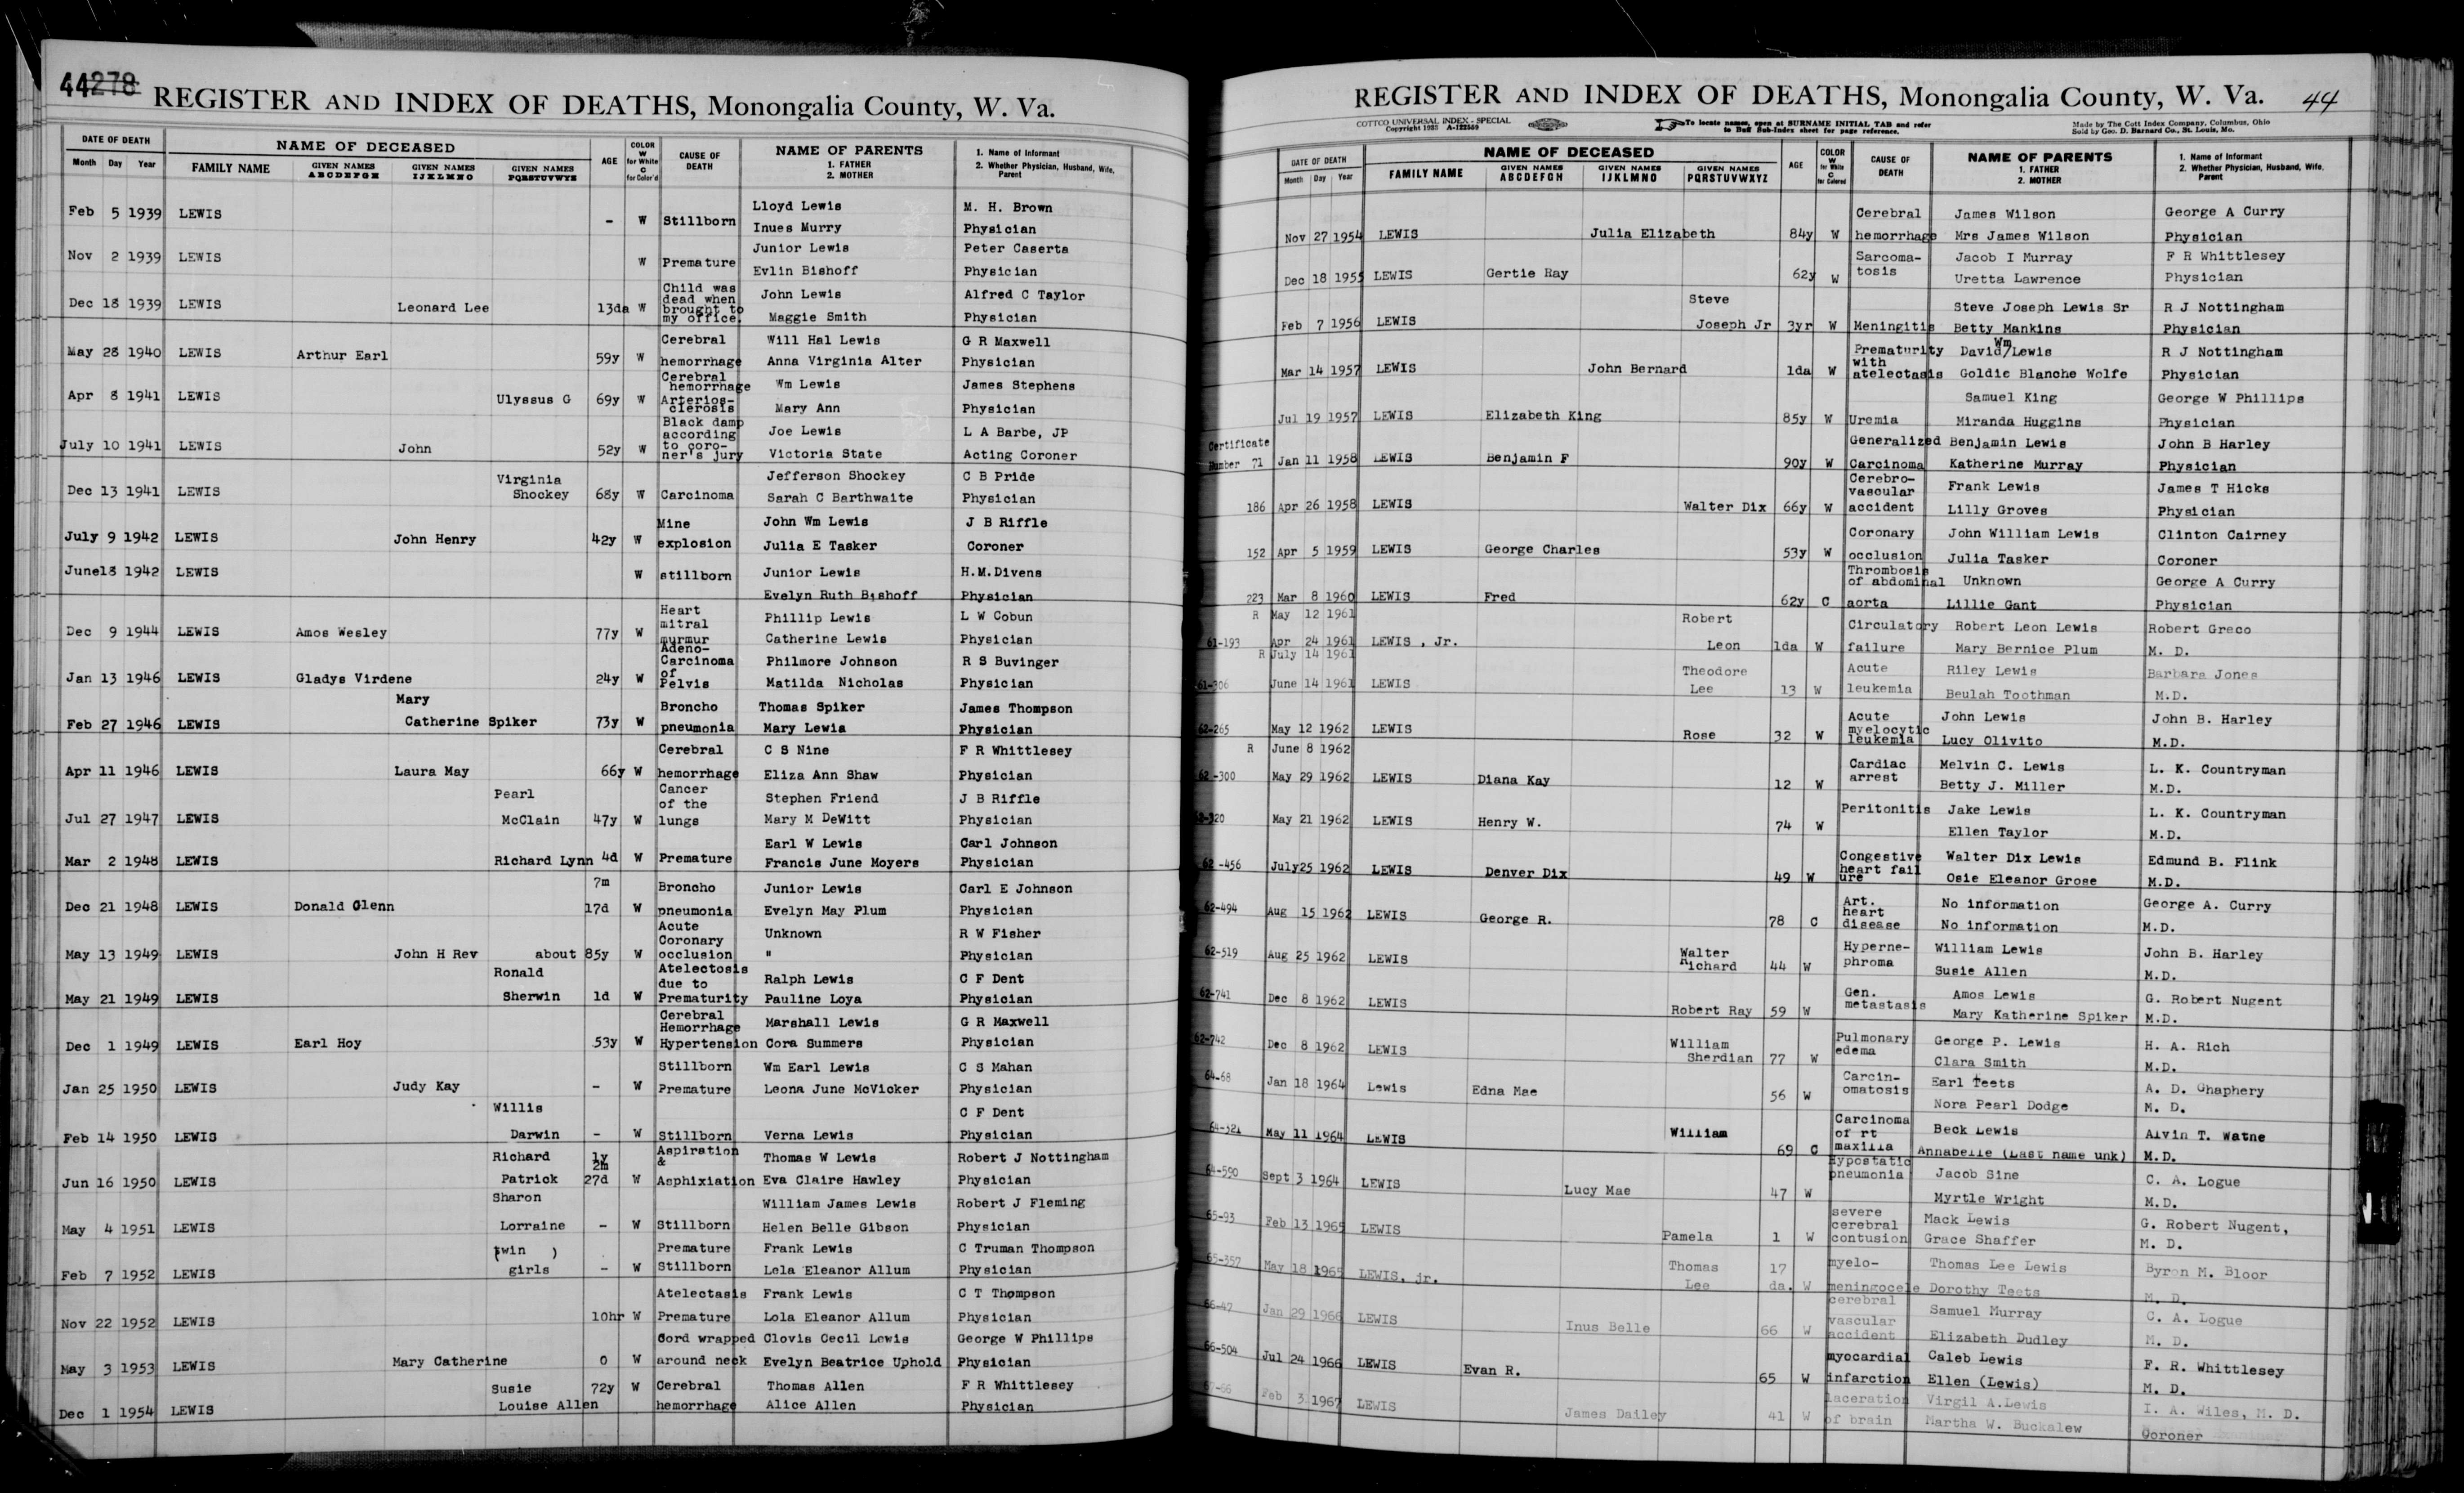 44 278
REGISTER AND INDEX OF DEATHS, Monongalia County, W. Va.
DATE OF DEATH NAME OF DECEASED AGE COLOR W for White C for Color'd CAUSE OF DEATH NAME OF PARENTS 1. FATHER 2. MOTHER 1. Name of Informant 2. Whether Physician, Husband, Wife, Parent
Month Day Year FAMILY NAME GIVEN NAMES ABCDEFGH GIVEN NAMES IJKLMNO GIVEN NAMES PQRSTUVWXYZ
Lloyd Lewis M. H. Brown
Feb 5 1939 LEWIS - W Stillborn Inues Murry Physician
Junior Lewis Peter Caserta
Nov 2 1939 LEWIS W Premature Evlin Bishoff Physician
Child was dead when John Lewis Alfred C Taylor
Dec 18 1939 LEWIS Leonard Lee 13da W brought to my office. Maggie Smith Physician
Cerebral Will Hal Lewis G R Maxwell
May 28 1940 LEWIS Arthur Earl 59y W hemorrhage Anna Virginia Alter Physician
Cerebral hemorrhage Wm Lewis James Stephens
Apr 8 1941 LEWIS Ulyssus G 69y W Arterios- clerosis Mary Ann Physician
Black damp according Joe Lewis L A Barbe, JP
July 10 1941 LEWIS John 52y W to coro- ner's jury Victoria State Acting Coroner
Virginia Jefferson Shockey C B Pride
Dec 13 1941 LEWIS Shockey 68y W Carcinoma Sarah C Barthwaite Physician
Mine John Wm Lewis J B Riffle
July 9 1942 LEWIS John Henry 42y W explosion Julia E Tasker Coroner
June18 1942 LEWIS W stillborn Junior Lewis H.M.Divens
Evelyn Ruth Bishoff Physician
Heart mitral Phillip Lewis L W Cobun
Dec 9 1944 LEWIS Amos Wesley 77y W murmur Catherine Lewis Physician
Adeno- Carcinoma Philmore Johnson R S Buvinger
Jan 13 1946 LEWIS Gladys Virdene 24y W of Pelvis Matilda Nicholas Physician
Mary Broncho Thomas Spiker James Thompson
Feb 27 1946 LEWIS Catherine Spiker 73y W pneumonia Mary Lewis Physician
Cerebral C S Nine F R Whittlesey
Apr 11 1946 LEWIS Laura May 66y W hemorrhage Eliza Ann Shaw Physician
Pearl Cancer of the Stephen Friend J B Riffle
Jul 27 1947 LEWIS McClain 47y W lungs Mary M DeWitt Physician
Earl W Lewis Carl Johnson
Mar 2 1948 LEWIS Richard Lynn 4d W Premature Francis June Moyers Physician
7m Broncho Junior Lewis Carl E Johnson
Dec 21 1948 LEWIS Donald Glenn 17d W pneumonia Evelyn May Plum Physician
Acute Coronary Unknown R W Fisher
May 13 1949 LEWIS John H Rev about 85y W occlusion " Physician
Ronald Atelectosis due to Ralph Lewis C F Dent
May 21 1949 LEWIS Sherwin 1d W Prematurity Pauline Loya Physician
Cerebral Hemorrhage Marshall Lewis G R Maxwell
Dec 1 1949 LEWIS Earl Hoy 53y W Hypertension Cora Summers Physician
Stillborn Wm Earl Lewis C S Mahan
Jan 25 1950 LEWIS Judy Kay - W Premature Leona June McVicker Physician
Willis C F Dent
Feb 14 1950 LEWIS Darwin - W Stillborn Verna Lewis Physician
Richard 1y 2m Aspiration & Thomas W Lewis Robert J Nottingham
Jun 16 1950 LEWIS Patrick 27d W Asphixiation Eva Claire Hawley Physician
Sharon William James Lewis Robert J Fleming
May 4 1951 LEWIS Lorraine - W Stillborn Helen Belle Gibson Physician
(twin ) Premature Frank Lewis C Truman Thompson
Feb 7 1952 LEWIS girls - W Stillborn Lola Eleanor Allum Physician
Atelectasis Frank Lewis C T Thompson
Nov 22 1952 LEWIS 10hr W Premature Lola Eleanor Allum Physician
Cord wrapped Clovis Cecil Lewis George W Phillips
May 3 1953 LEWIS Mary Catherine 0 W around neck Evelyn Beatrice Uphold Physician
Susie 72y W Cerebral Thomas Allen F R Whittlesey
Dec 1 1954 LEWIS Louise Allen hemorrhage Alice Allen Physician
REGISTER AND INDEX OF DEATHS, Monongalia County, W. Va. 44
COTTCO UNIVERSAL INDEX - SPECIAL Copyright 1935 A-122559 To locate names, open at SURNAME INITIAL TAB and refer to Buff Sub-Index sheet for page reference. Made by The Cott Index Company, Columbus, Ohio Sold by Geo. D. Barnard Co., St. Louis, Mo.
DATE OF DEATH NAME OF DECEASED AGE COLOR W for White C for Colored CAUSE OF DEATH NAME OF PARENTS 1. FATHER 2. MOTHER 1. Name of Informant 2. Whether Physician, Husband, Wife, Parent
Month Day Year FAMILY NAME GIVEN NAMES ABCDEFGH GIVEN NAMES IJKLMNO GIVEN NAMES PQRSTUVWXYZ
Cerebral James Wilson George A Curry
Nov 27 1954 LEWIS Julia Elizabeth 84y W hemorrhage Mrs James Wilson Physician
Sarcoma- Jacob I Murray F R Whittlesey
Dec 18 1955 LEWIS Gertie Ray 62y W tosis Uretta Lawrence Physician
Steve Steve Joseph Lewis Sr R J Nottingham
Feb 7 1956 LEWIS Joseph Jr 3yr W Meningitis Betty Mankins Physician
Prematurity with David/Wm Lewis R J Nottingham
Mar 14 1957 LEWIS John Bernard 1da W atelectasis Goldie Blanche Wolfe Physician
Samuel King George W Phillips
Jul 19 1957 LEWIS Elizabeth King 85y W Uremia Miranda Huggins Physician
Certificate Generalized Benjamin Lewis John B Harley
Number 71 Jan 11 1958 LEWIS Benjamin F 90y W Carcinoma Katherine Murray Physician
Cerebro- vascular Frank Lewis James T Hicks
186 Apr 26 1958 LEWIS Walter Dix 66y W accident Lilly Groves Physician
Coronary John William Lewis Clinton Cairney
152 Apr 5 1959 LEWIS George Charles 53y W occlusion Julia Tasker Coroner
Thrombosis of abdominal Unknown George A Curry
223 Mar 8 1960 LEWIS Fred 62y C aorta Lillie Gant Physician
R May 12 1961 Robert Circulatory Robert Leon Lewis Robert Greco
61-193 Apr 24 1961 LEWIS , Jr. Leon 1da W failure Mary Bernice Plum M. D.
R July 14 1961 Theodore Acute Riley Lewis Barbara Jones
61-306 June 14 1961 LEWIS Lee 13 W leukemia Beulah Toothman M.D.
Acute myelocytic John Lewis John B. Harley
62-265 May 12 1962 LEWIS Rose 32 W leukemia Lucy Olivito M.D.
R June 8 1962 Cardiac Melvin C. Lewis L. K. Countryman
62-300 May 29 1962 LEWIS Diana Kay 12 W arrest Betty J. Miller M.D.
Peritonitis Jake Lewis L. K. Countryman
62-320 May 21 1962 LEWIS Henry W. 74 W Ellen Taylor M.D.
Congestive Walter Dix Lewis Edmund B. Flink
62-456 July25 1962 LEWIS Denver Dix 49 W heart fail ure Osie Eleanor Grose M.D.
Art. heart No information George A. Curry
62-494 Aug 15 1962 LEWIS George R. 78 C disease No information M.D.
Walter Hyperne- William Lewis John B. Harley
62-519 Aug 25 1962 LEWIS Richard 44 W phroma Susie Allen M.D.
Gen. Amos Lewis G. Robert Nugent
62-741 Dec 8 1962 LEWIS Robert Ray 59 W metastasis Mary Katherine Spiker M.D.
William Pulmonary George P. Lewis H. A. Rich
62-742 Dec 8 1962 LEWIS Sherdian 77 W edema Clara Smith M.D.
Carcin- Earl Teets A. D. Ghaphery
64-68 Jan 18 1964 Lewis Edna Mae 56 W omatosis Nora Pearl Dodge M. D.
Carcinoma of rt Beck Lewis Alvin T. Watne
64-321 May 11 1964 LEWIS William 69 C maxilla Annabelle (Last name unk) M.D.
Hypostatic Jacob Sine C. A. Logue
64-590 Sept 3 1964 LEWIS Lucy Mae 47 W pneumonia Myrtle Wright M.D.
severe cerebral Mack Lewis G. Robert Nugent,
65-93 Feb 13 1965 LEWIS Pamela 1 W contusion Grace Shaffer M. D.
Thomas 17 myelo- Thomas Lee Lewis Byron M. Bloor
65-357 May 18 1965 LEWIS, jr. Lee da. W meningocele Dorothy Teets M. D.
cerebral vascular Samuel Murray C. A. Logue
66-47 Jan 29 1966 LEWIS Inus Belle 66 W accident Elizabeth Dudley M. D.
myocardial Caleb Lewis F. R. Whittlesey
66-504 Jul 24 1966 LEWIS Evan R. 65 W infarction Ellen (Lewis) M. D.
laceration Virgil A.Lewis I. A. Wiles, M. D.
67-66 Feb 3 1967 LEWIS James Dailey 41 W of brain Martha W. Buckalew Coroner